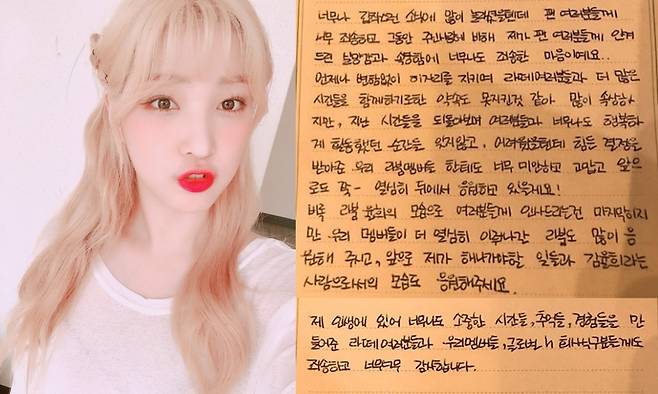 너무나 갑작스런 소식에 많이 놀라셨을텐데 팬 여러분들께
너무 죄송하고 그동안 주신사랑에 비해 제가 팬 여러분들께 안겨
드린 실망감과 속상함에 너무나도 죄송한 마음이에요..
언제나 변함없이 이자리를 지키며 라떼여러분들과 더 많은
시간들을 함께하기로한 약속도 못지킨것 같아 많이 속상하
지만, 지난 시간들을 되돌아보며 여러분들과 너무나도 행복하
게 활동했던 순간을 잊지않고, 어려웠을텐데 힘든 결정을
받아준 우리 리블멤버들 한테도 너무 미안하고 고맙고 앞으
로도 쭉- 열심히 뒤에서 응원하고 있을게요!
비록 리블 윤희의 모습으로 여러분들께 인사드리는건 마지막이지
만 우리 멤버들이 더 열심히 이뤄나갈 리블도 많이 응
원해 주시고, 앞으로 제가 해나가야할 일들과 김윤희라는
사람으로서의 모습도 응원해주세요.
제 인생에 있어 너무나도 소중한 시간들, 추억들, 경험들을 만
들어준 라떼여러분들과 우리멤버들, 글로벌h 회사식구분들께도
죄송하고 너무너무 감사합니다.